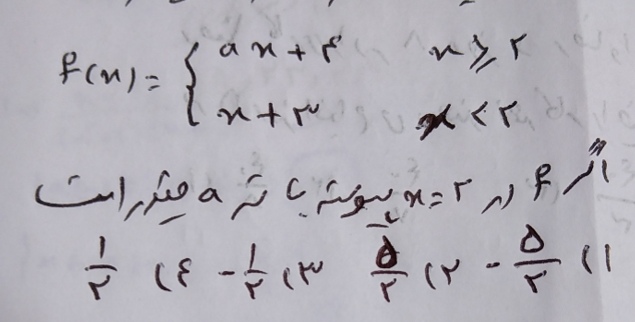 f(x) = { ax + ۴    x ≥ ۲
x + ۳    x < ۲
اگر f در x=۲ پیوسته باشد a چقدر است
۱) -۵/۲    ۲) ۵/۲    ۳) -۱/۲    ۴) ۱/۲